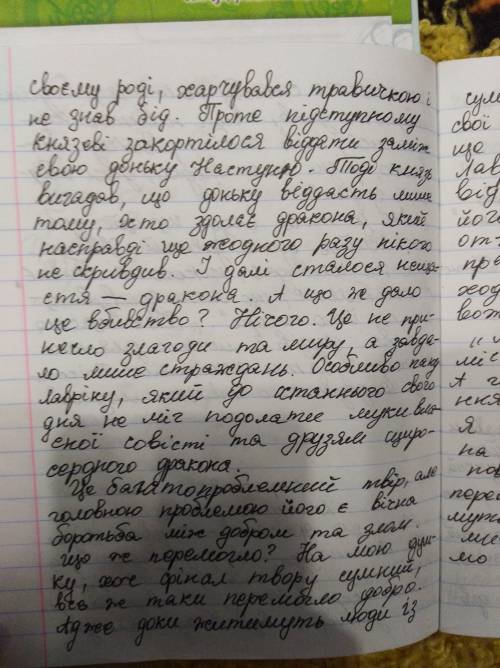 своєму роді, харчувався травичкою і
не знав бід. Проте підступному
князеві закортілося віддати заміж
свою доньку Настуню. Тоді князь
вигадав, що доньку віддасть лише
тому, хто здолає дракона, який
насправді ще жодного разу нікого
не скривдив. І далі сталося неща-
стя — дракона. А що ж дало
це вбивство? Нічого. Це не при-
несло злагоди та миру, а завда-
ло лише страждань. Особливо пану
лавріну, який до останнього свого
дня не міг подолати муки вла-
сної совісті та друзям щиро-
сердного дракона.
Це багатопроблемний твір, але
головною проблемою його є вічна
боротьба між добром та злом.
Що ж перемогло? На мою дум-
ку, хоч фінал твору сумний,
все ж таки перемогло добро.
Адже доки житимуть люди із
сум
свої
що
Лав
від
його
от
пра
ход
вож
міс
А
ння
я
на
пов
перем
муж
ме
мо